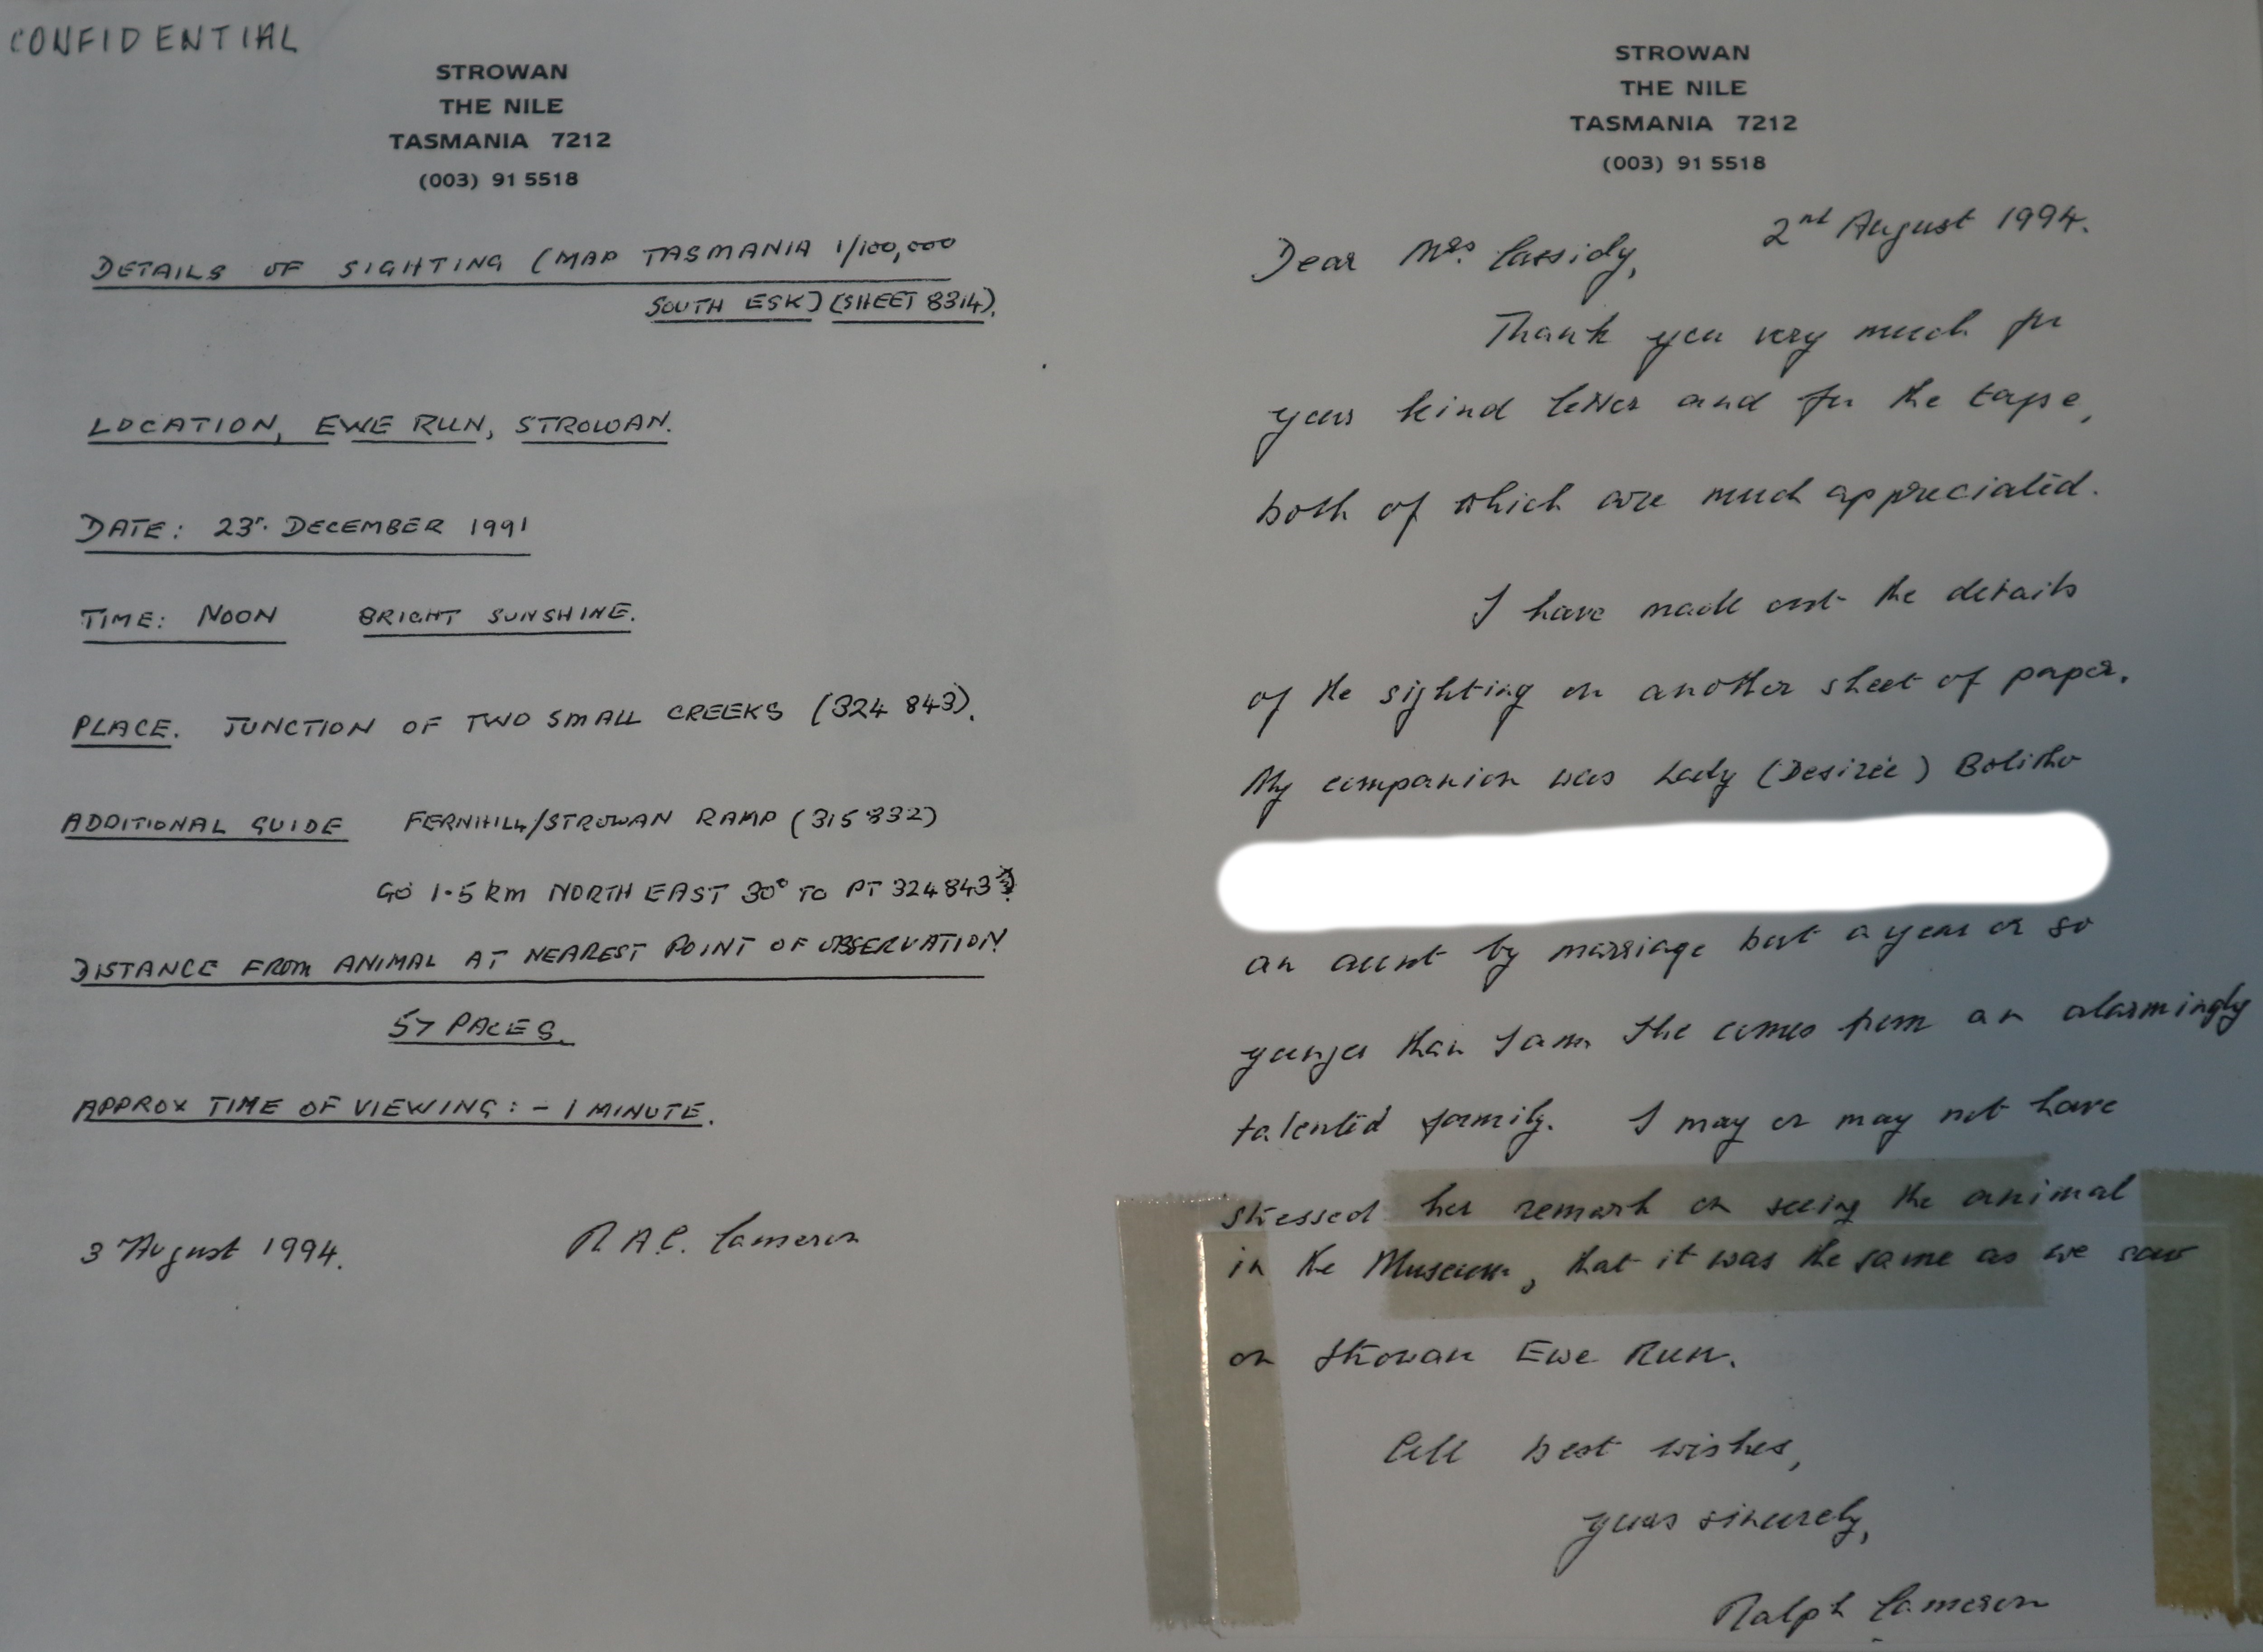 CONFIDENTIAL
STROWAN
THE NILE
TASMANIA 7212
(003) 91 5518
DETAILS OF SIGHTING (MAP TASMANIA 1/100,000
SOUTH ESK) (SHEET 8314).
LOCATION, EWE RUN, STROWAN.
DATE: 23r. DECEMBER 1991
TIME: NOON BRIGHT SUNSHINE.
PLACE. JUNCTION OF TWO SMALL CREEKS (324 843).
ADDITIONAL GUIDE FERNHILL/STROWAN RAMP (315 832)
GO 1.5 km NORTH EAST 30° TO PT 324843
DISTANCE FROM ANIMAL AT NEAREST POINT OF OBSERVATION
57 PACES.
APPROX TIME OF VIEWING: - 1 MINUTE.
3 August 1994. R A C. Cameron
STROWAN
THE NILE
TASMANIA 7212
(003) 91 5518
2nd August 1994.
Dear Mrs. Cassidy,
Thank you very much for
your kind letter and for the tape,
both of which are much appreciated.
I have made out the details
of the sighting on another sheet of paper.
My companion was Lady (Desirée) Bolitho
an aunt by marriage but a year or so
younger than I am. She comes from an alarmingly
talented family. I may or may not have
stressed her remark on seeing the animal
in the Museum, that it was the same as we saw
on Strowan Ewe Run.
All best wishes,
yours sincerely,
Ralph Cameron